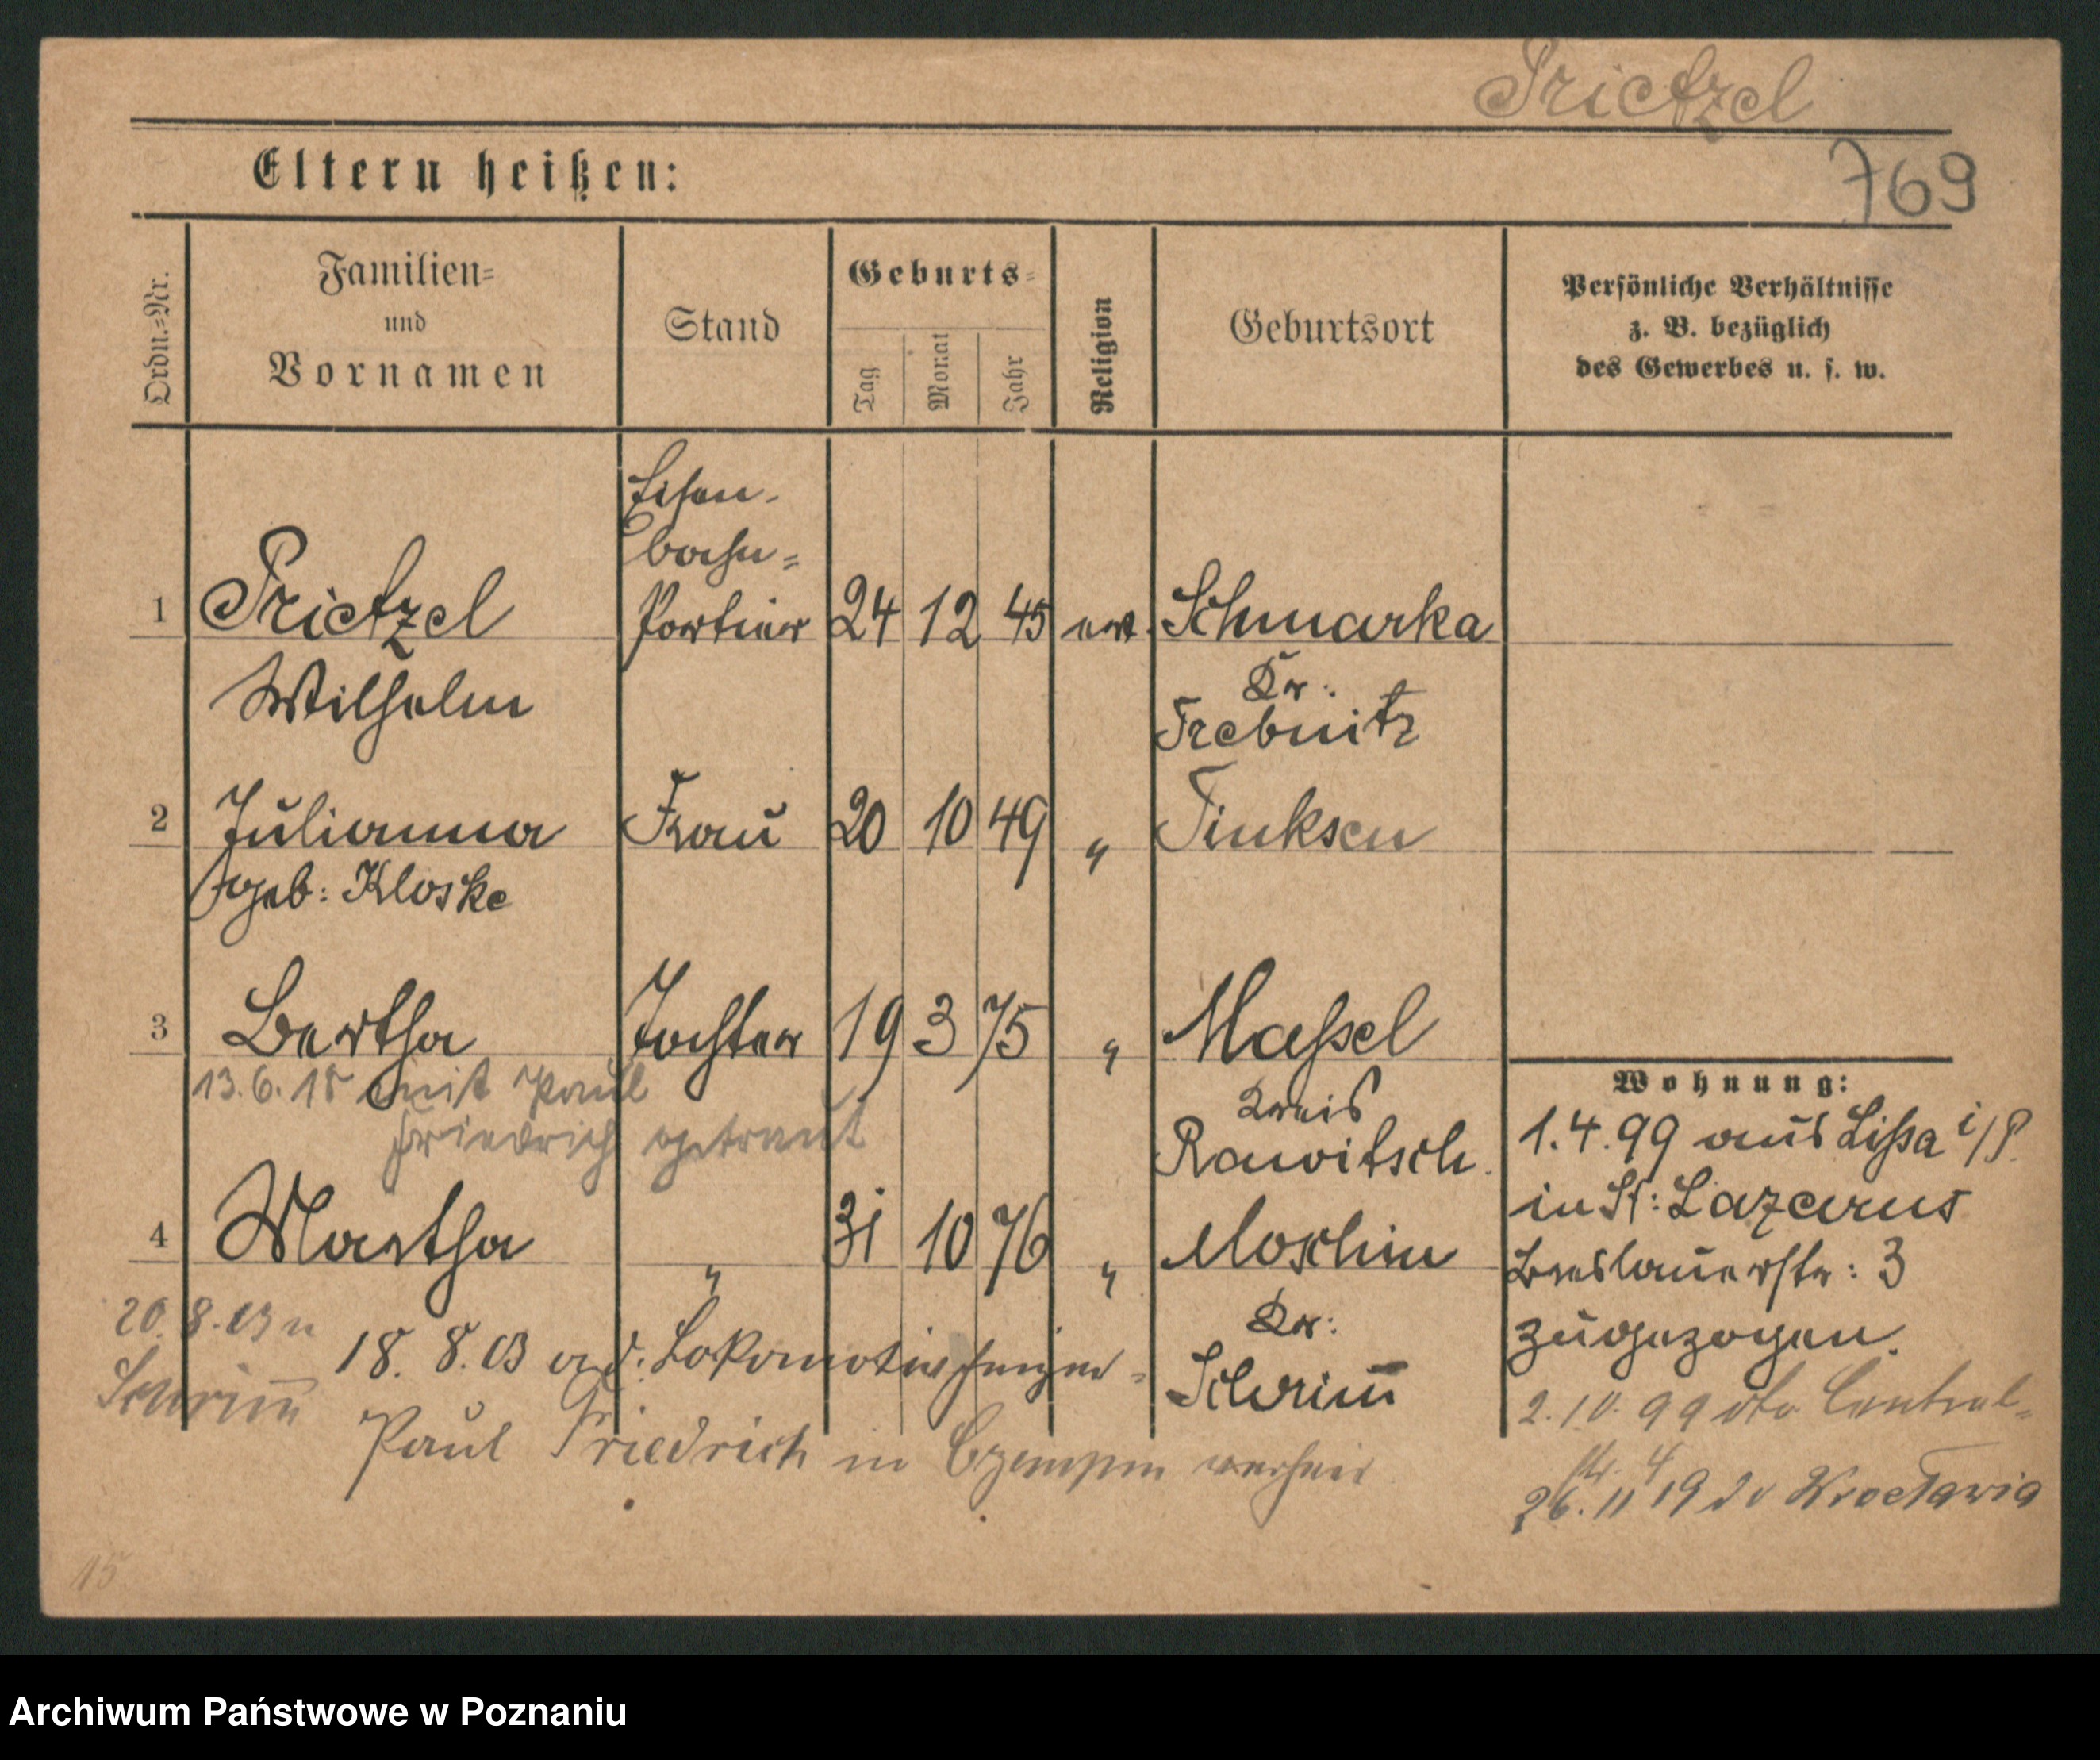 Prietzel
769
Eltern heißen:
Ordn.-Nr.
Familien-
und
Vornamen
Stand
Geburts-
Tag
Monat
Jahr
Religion
Geburtsort
Persönliche Verhältnisse
z. B. bezüglich
des Gewerbes u. s. w.
Eisen-
bahn-
1 Prietzel Portier 24 12 45 ev. Schmarka
Wilhelm Kr:
Trebnitz
2 Julianna Frau 20 10 49 " Tinksen
geb: Kloske
3 Bertha Tochter 19 3 75 " Maßel
13.6.15 mit Paul Kreis
Friedrich getraut Rawitsch.
4 Martha " 31 10 76 " Moschin
20.8.03 n Kr:
Schrim̅ Schrim̅
18. 8. 03 a. d. Lokomotivheizer-
Paul Friedrich in Czempin verheir
Wohnung:
1.4.99 aus Lißa i/P.
in St: Lazarus
Breslauerstr: 3
zugezogen.
2.10.99 dto Central-
str. 4
26. 11 19 do Wrocławia
15
Archiwum Państwowe w Poznaniu